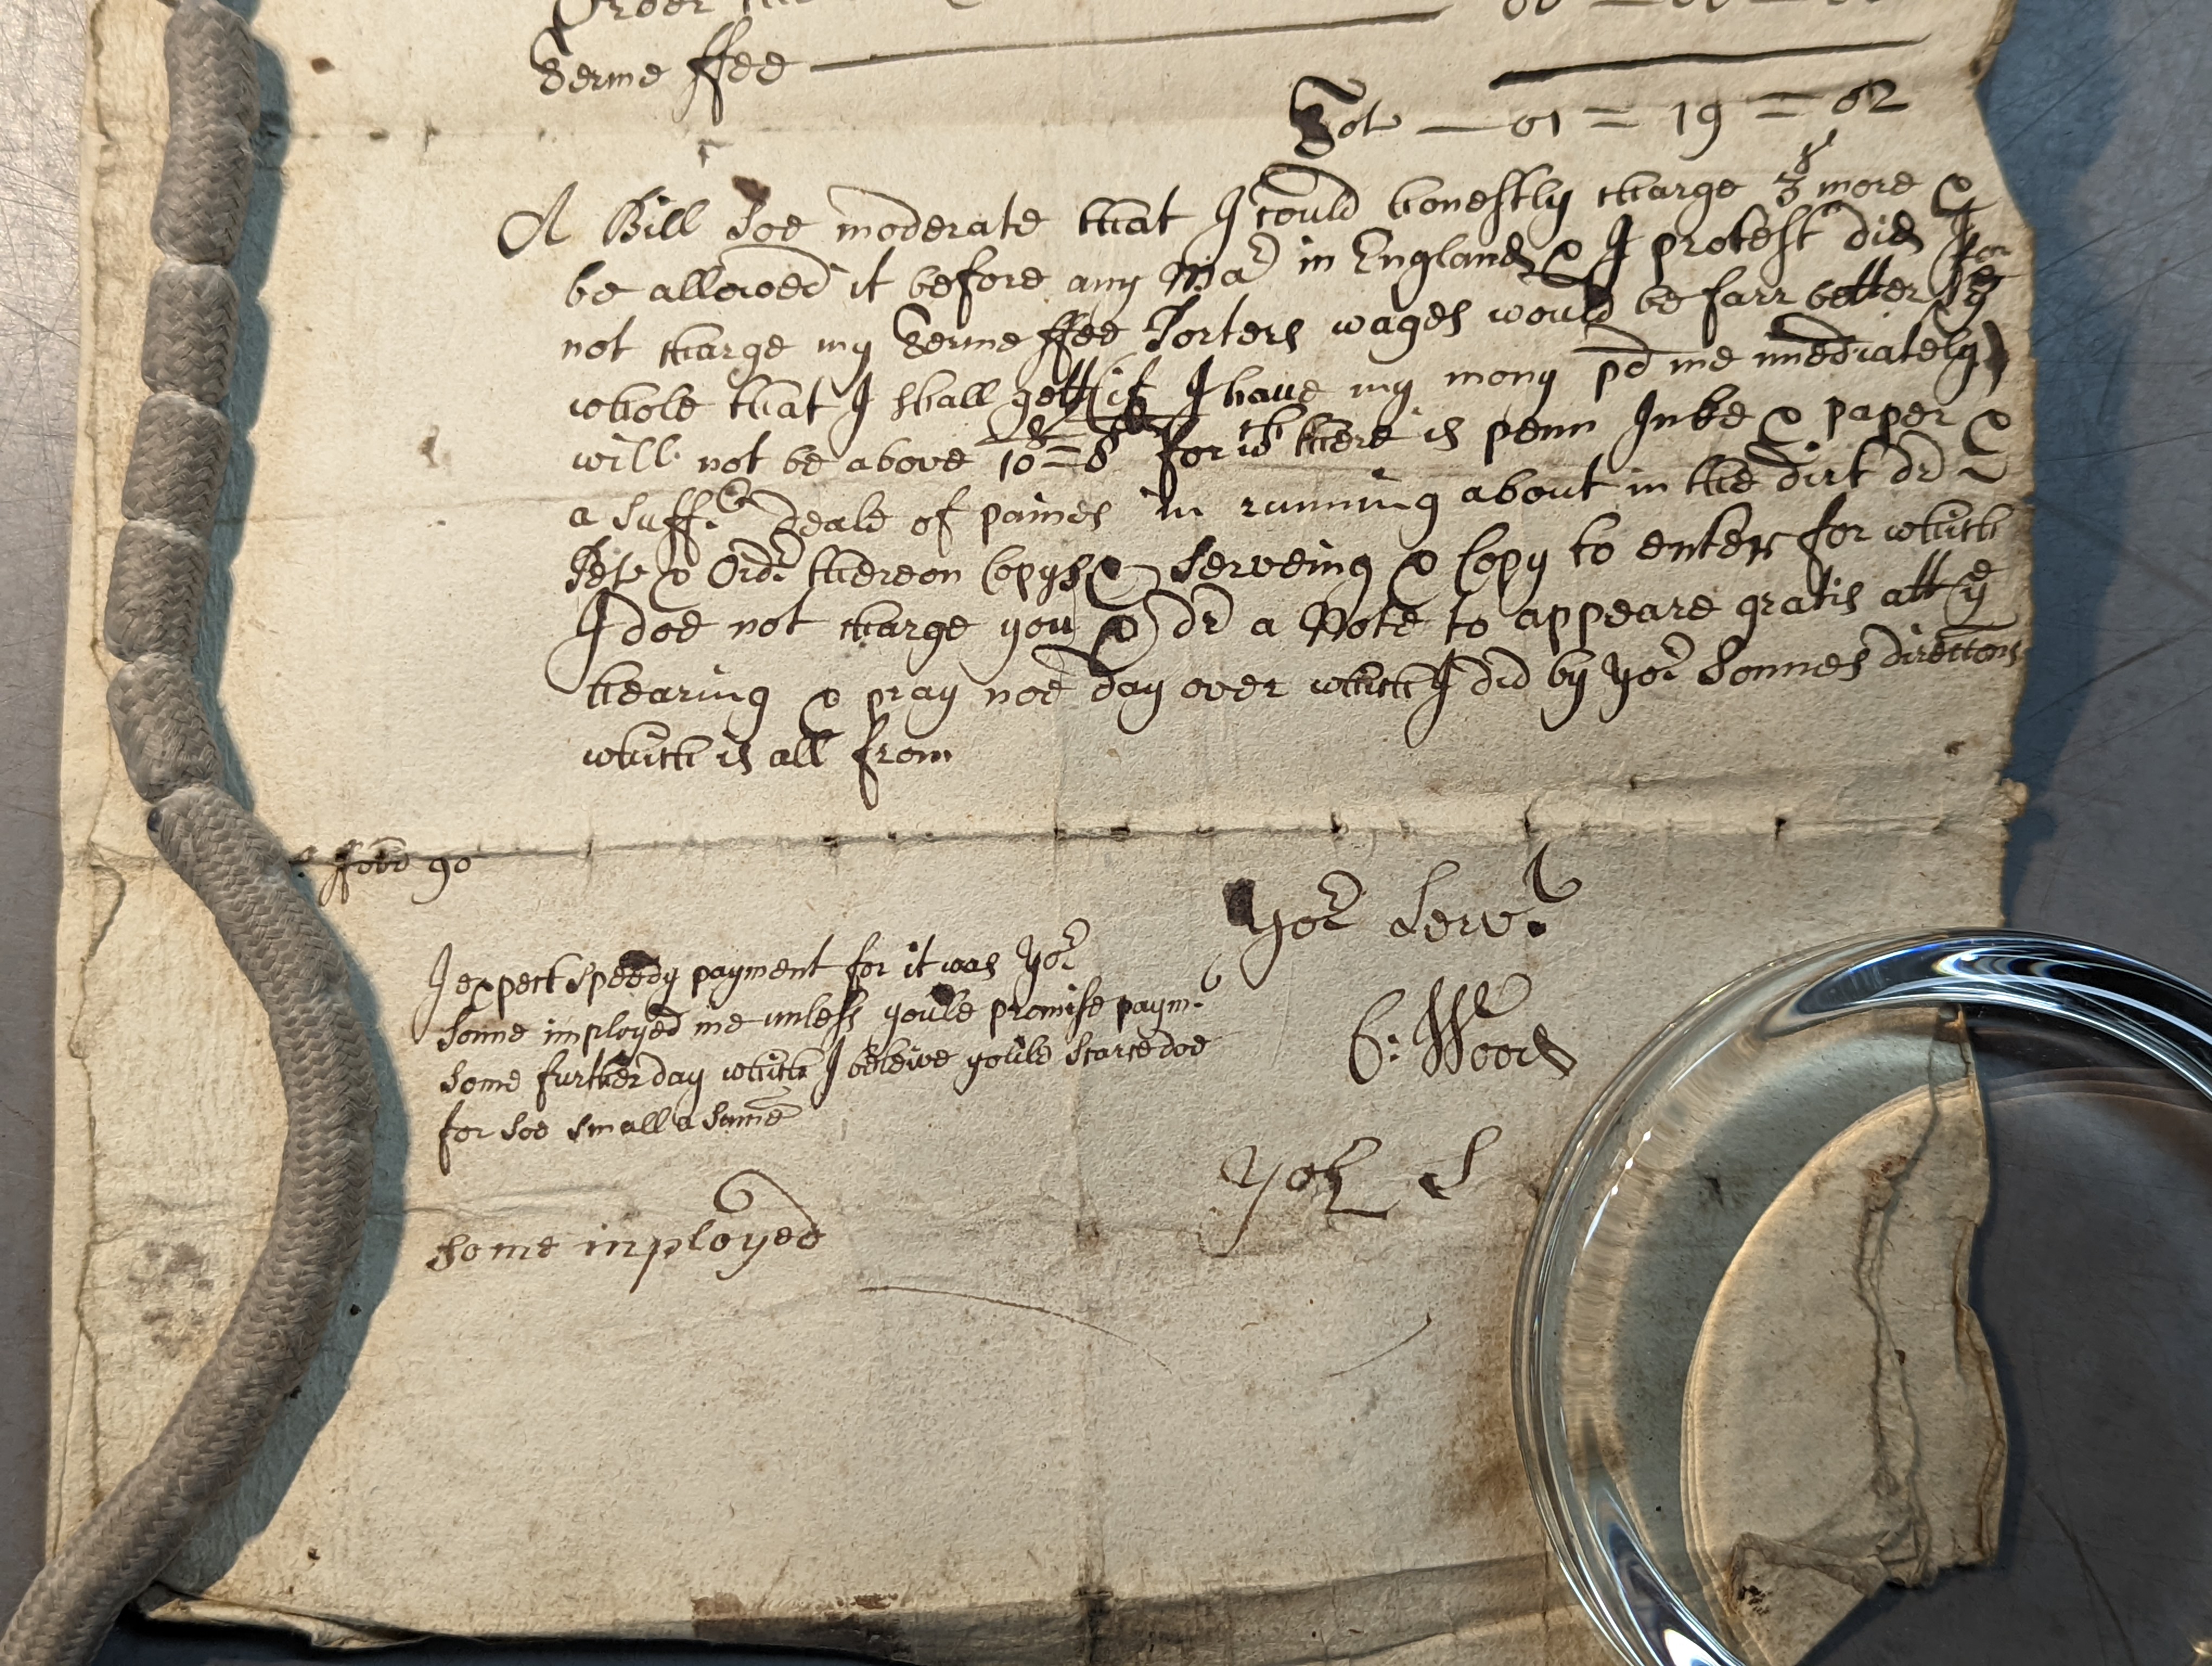 Order
Terme ffee
Tot — 01 = 19 = 02
A Bill soe moderate that I could honestly charge 3s more &
be allowed it before any Mar in England & I protest did I
not charge my Terme ffee Porters wages would be farr better for ye
whole that I shall gett (if I have my mony pd me imediately)
will not be above 10s = 8d for wch there is penn Inke & paper &
a suff.t deale of paines in running about in the dirt dr
Petr & Ordr thereon Copys & Serveing & Copy to enter for which
I doe not charge you & dr a Note to appeare gratis att ye
hearing & pray noe day over which I did by yor Sonnes directons
which is all from
ffebr 90
Yor Servt
I expect speedy payment for it was Yor
Sonne imployed me unless youle promise paymt
some further day which I beleive youle scarce doe
for soe small a sume
C: Wood
Yor S
some inployed